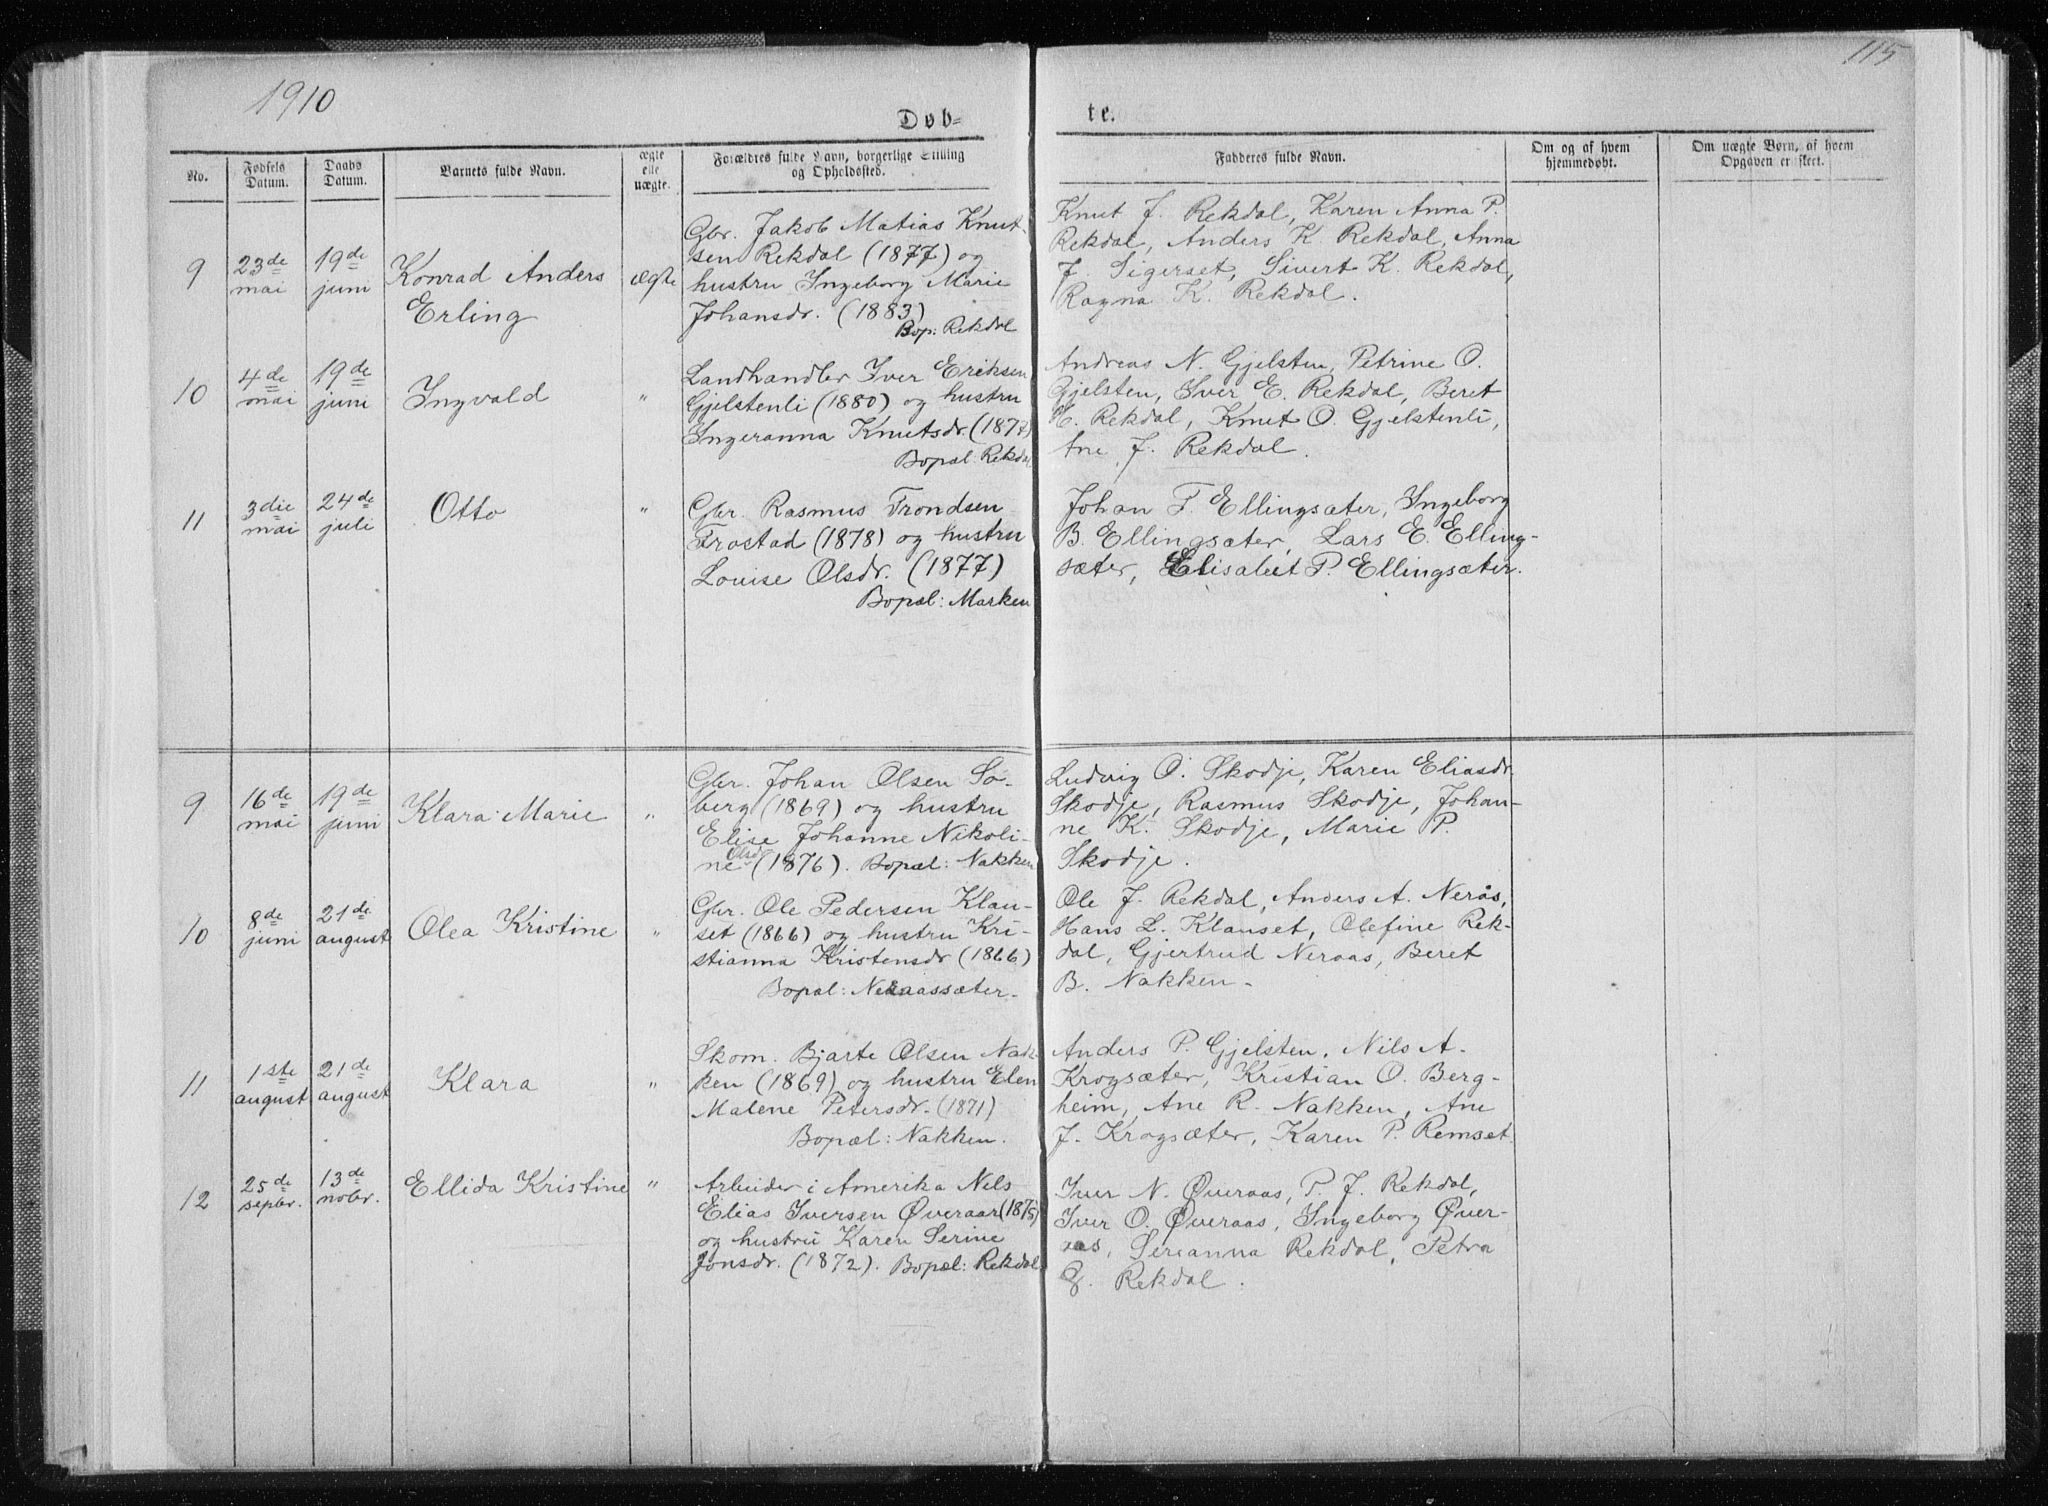 1910
115
Døb-
te.
No.
Fødsels Datum.
Daabs Datum.
Barnets fulde Navn.
ægte elle uægte.
Forældres fulde Navn, borgerlige Stilling og Opholdssted.
Fadderes fulde Navn.
Om og af hvem hjemmedøbt.
Om uægte Børn, af hvem Opgaven er skeet.
9
23de mai
19de juni
Konrad Anders
Erling
ægte
Gbr. Jakob Matias Knut-
sen Rekdal (1877) og
hustru Ingeborg Marie
Johansdr. (1883)
Bop: Rekdal
Knut J. Rekdal, Karen Anna P.
Rekdal, Anders K. Rekdal, Anna
J. Sigerset, Sivert K. Rekdal,
Ragna K. Rekdal.
10
4de mai
19de juni
Ingvald
"
Landhandler Iver Eriksen
Gjelstenli (1880) og hustru
Ingeranna Knutsdr. (1877)
Bopæl: Rekdal
Andreas N. Gjelsten, Petrine O.
Gjelsten, Iver E. Rekdal, Beret
K. Rekdal, Knut O. Gjelstenli,
Ane J. Rekdal.
11
3die mai
24de juli
Otto
"
Gbr. Rasmus Trondsen
Frostad (1878) og hustru
Louise Olsdr. (1877)
Bopæl: Marken
Johan T. Ellingsæter, Ingeborg
B. Ellingsæter, Lars E. Elling-
sæter, Elisabet P. Ellingsæter.
9
16de mai
19de juni
Klara Marie
"
Gbr. Johan Olsen Sø-
berg (1869) og hustru
Elise Johanne Nikoli-
ne Olsdr (1876). Bopæl: Nakken
Ludvig O. Skodje, Karen Eliasdr
Skodje, Rasmus Skodje, Johan-
ne K. Skodje, Marie P.
Skodje.
10
8de juni
21de august
Olea Kristine
"
Gbr. Ole Pedersen Klau-
set (1866) og hustru Kri-
stianna Kristensdr (1866)
Bopæl: Neraassæter.
Ole J. Rekdal, Anders A. Nerås,
Hans L. Klauset, Olefine Rek-
dal, Gjertrud Neraas, Beret
B. Nakken.
11
1ste august
21de august
Klara
"
Skom. Bjarte Olsen Nak-
ken (1869) og hustru Elen
Malene Petersdr. (1871)
Bopæl: Nakken.
Anders P. Gjelsten, Nils A.
Krogsæter, Kristian O. Berg-
heim, Ane R. Nakken, Ane
J. Krogsæter, Karen P. Remset.
12
25de septbr.
13de nobr.
Ellida Kristine
"
Arbeider i Amerika Nils
Elias Iversen Øveraas (1875)
og hustru Karen Serine
Jonsdr. (1872). Bopæl: Rekdal
Iver N. Øveraas, P. J. Rekdal,
Iver O. Øveraas, Ingeborg Øver-
aas, Serianna Rekdal, Petra
Rekdal.